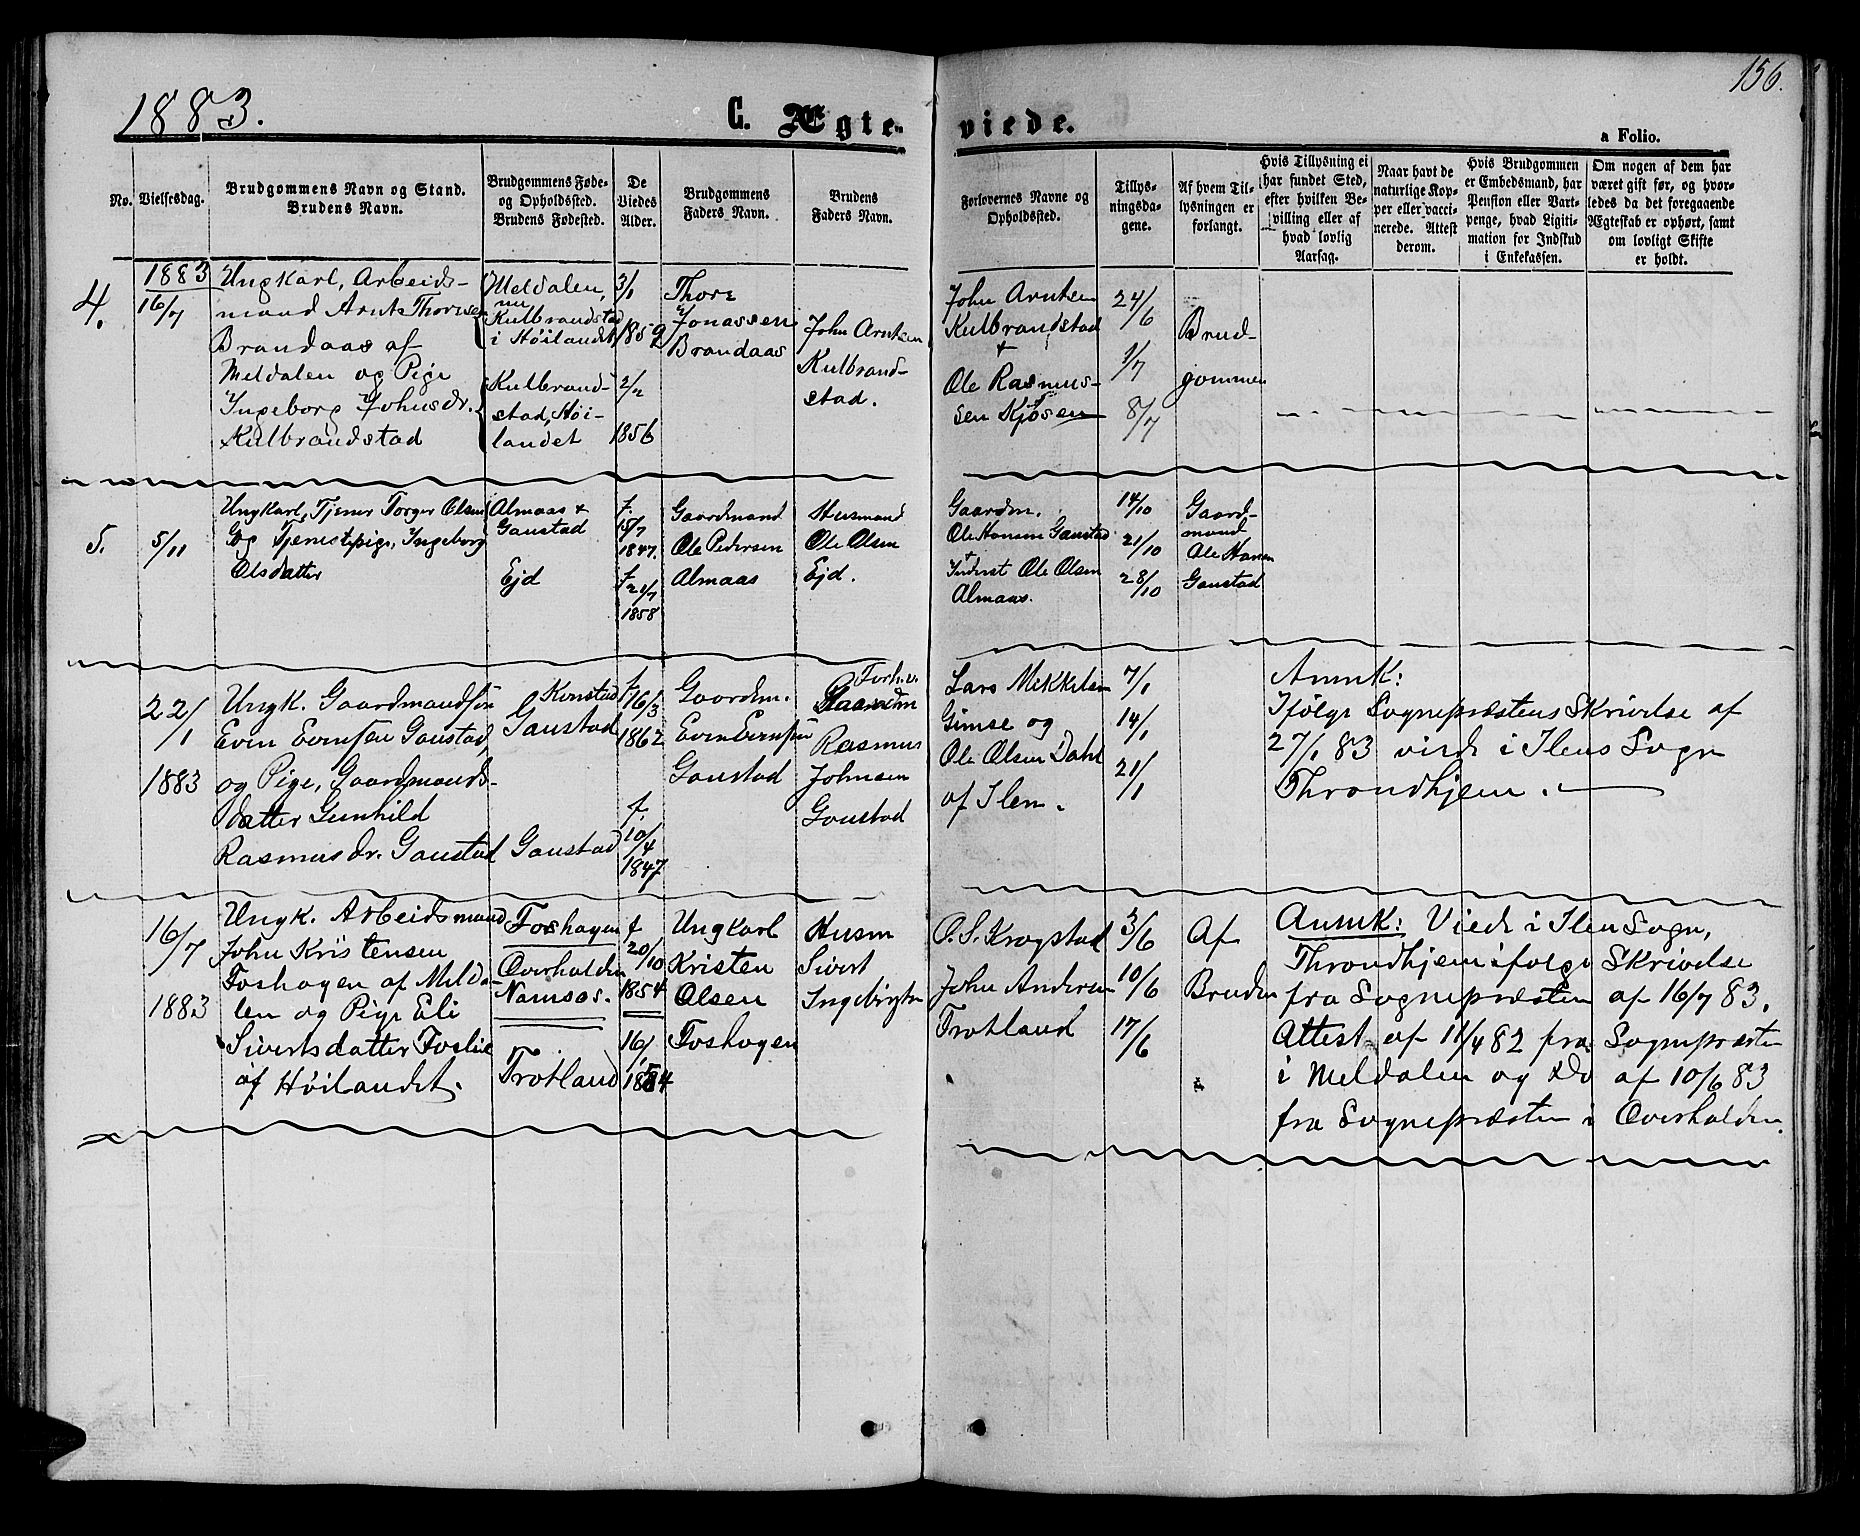 1883.
C. Ægte-
viede.
156.
a Folio.
No.
Vielsesdag.
Brudgommens Navn og Stand.
Brudens Navn.
Brudgommens Føde-
og Opholdssted.
Brudens Fødested.
De
Viedes
Alder.
Brudgommens
Faders Navn.
Brudens
Faders Navn.
Forlovernes Navne og
Opholdssted.
Tillys-
ningsda-
gene.
Af hvem Til-
lysningen er
forlangt.
Hvis Tillysning ei
har fundet Sted,
efter hvilken Be-
villing eller af
hvad lovlig
Aarsag.
Naar havt de
naturlige Kop-
per eller vacci-
nerede. Attest
derom.
Hvis Brudgommen
er Embedsmand, har
Pension eller Vart-
penge, hvad Ligiti-
mation for Indskud
i Enkekassen.
Om nogen af dem har
været gift før, og hvor-
ledes da det foregaaende
Ægteskab er ophørt, samt
om lovligt Skifte
er holdt.
4.
1883
16/7
Ungkarl, Arbeids-
mand Arnt Thoresen
Brandaas af
Meldalen og Pige
Ingeborg Johnsdr.
Kulbrandstad
Meldalen,
nu
Kulbrandstad
i Høilandet
Kulbrand-
stad, Høi-
landet
3/1
1859
2/2
1856
Thore
Jonassen
Brandaas
John Arntsen
Kulbrand-
stad.
John Arntsen
Kulbrandstad
+
Ole Rasmus-
sen Kjøsen
24/6
1/7
8/7
Brud-
gommen
5.
5/11
Ungkarl, Tjener Torger Olsen
Og Tjenestpige, Ingeborg
Olsdatter
Almaas +
Gaustad
Ejd
f.
15/7
1847.
f.
21/7
1858
Gaardmand
Ole Pedersen
Almaas
Husmand
Ole Olsen
Ejd.
Gaardm.
Ole Hansen Gaustad
+
Inderst Ole Olsen
Almaas.
14/10
21/10
28/10
Gaard-
mand
Ole Hansen
Gaustad
22/1
1883
Ungk. Gaardmandsøn
Even Evensen Gaustad,
og Pige, Gaardmands-
datter Gunhild
Rasmusdr. Gaustad
Konstad
Gaustad
Gaustad
f.
16/3
1862
f.
10/4
1847
Gaardm.
Even Evensen
Gaustad
Forh.v.
Gaardm
Rasmus
Johnsen
Gaustad
Lars Mikkelsen
Gimse og
Ole Olsen Dahl
af Ilen.
7/1
14/1
21/1
Anmk:
Ifølge Sognepræstens Skrivelse af
27/1 83 viede i Ilens Sogn
Throndhjem.
16/7
1883
Ungk. Arbeidsmand
John Kristensen
Foshagen af Melda-
len og Pige Eli
Sivertsdatter Foslie
af Høilandet.
Foshagen
Overhalden
Namsos.
Trotland
f
20/10
1854
16/1
1854
Ungkarl
Kristen
Olsen
Foshagen
Husm
Sivert
Ingebrigtsn
O. S. Krogstad
John Andersen
Trotland
3/6
10/6
17/6
Af
Bruden
Anmk: Viede i Ilen Sogn,
Throndhjem ifølge Skrivelse
fra Sognepræsten af 16/7 83.
Attest af 11/4 82 fra Sognepræsten
i Meldalen og Do af 10/6 83
fra Sognepræsten i Overhalden.